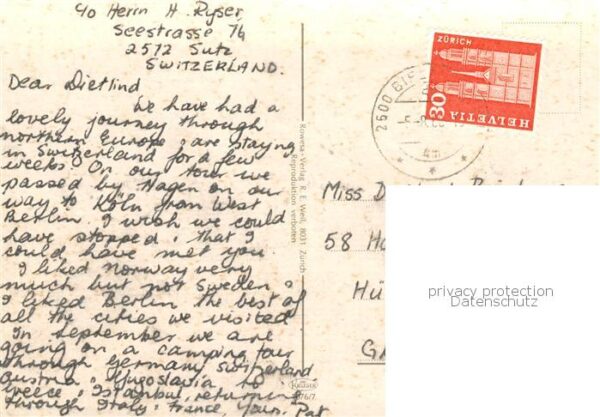 c/o Herrn H. Ryser
Seestrasse 76
2572 Sutz
SWITZERLAND.
Dear Dietlind
We have had a
lovely journey through
northern Europe & are staying
in Switzerland for a few
weeks. On our tour we
passed by Hagen on our
way to Köln from West
Berlin. I wish we could
have stopped & that I
could have met you
I liked Norway very
much but not Sweden &
I liked Berlin the best of
all the cities we visited
In September we are
going on a camping tour
through Germany, Switzerland
Austria & Yugoslavia to
Greece & Istanbul, returning
through Italy & France. Yours. Pat
Rowesa-Verlag R. E. Weil, 8031 Zürich
Reproduktion verboten
ZÜRICH
30
HELVETIA
2500
Miss D
58 Ha
HÜ
privacy protection
Datenschutz